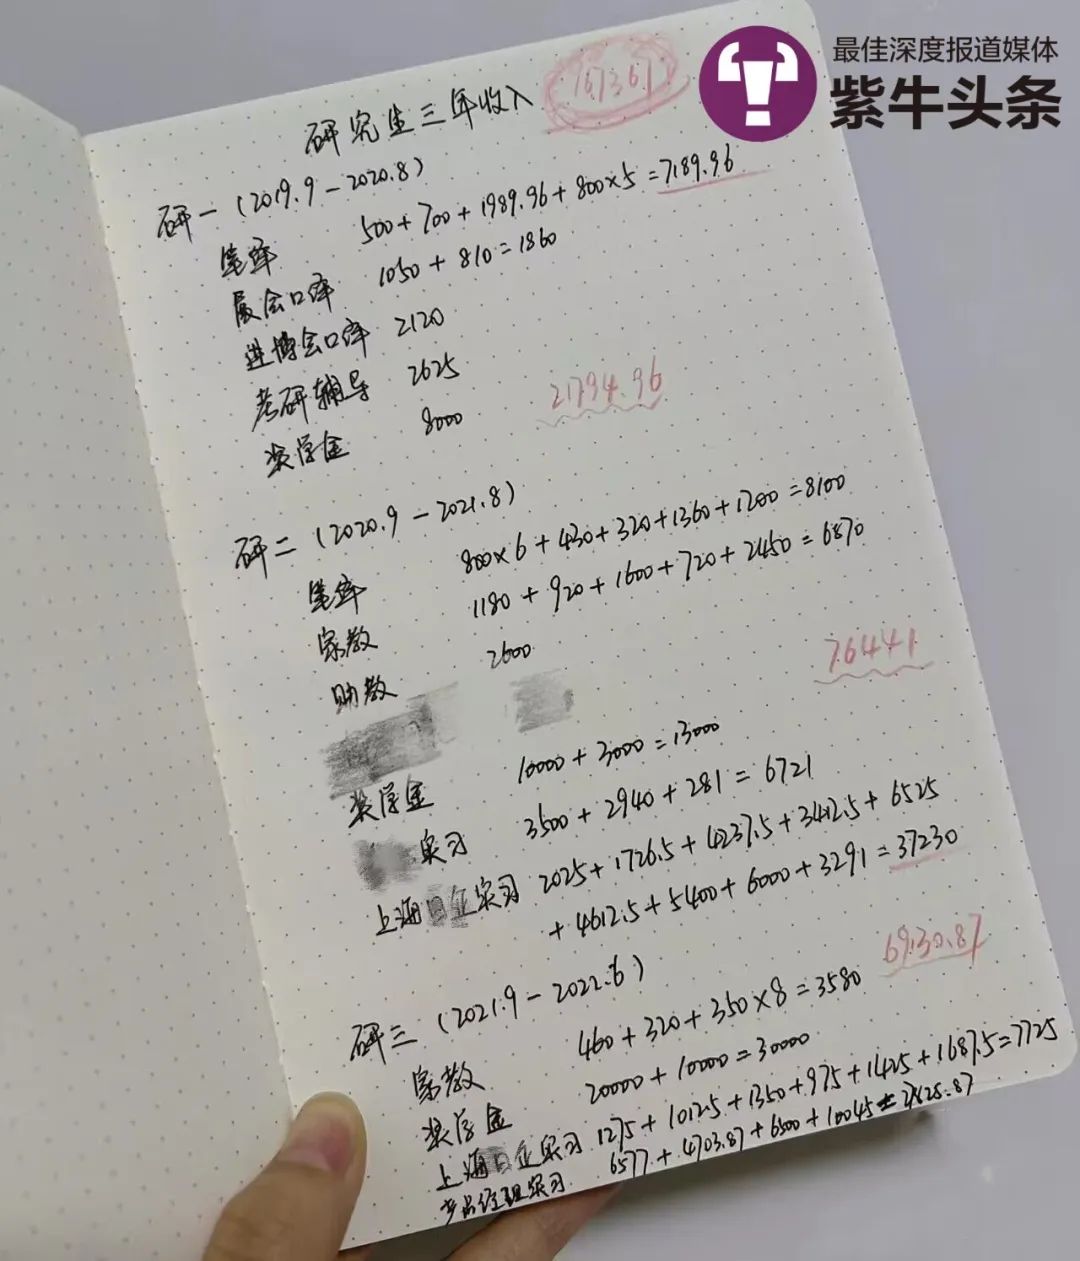 最佳深度报道媒体
紫牛头条
研究生三年收入 167367
研一 (2019.9 - 2020.8)
笔译 500 + 700 + 1989.96 + 800×5 = 7189.96
展会口译 1050 + 810 = 1860
进博会口译 2120
考研辅导 2625
奖学金 8000
21794.96
研二 (2020.9 - 2021.8)
笔译 800×6 + 430 + 320 + 1360 + 1200 = 8100
家教 1180 + 920 + 1600 + 720 + 2450 = 6870
助教 2600
76441
奖学金 10000 + 3000 = 13000
实习 3500 + 2940 + 281 = 6721
上海日企实习 2025 + 1726.5 + 4237.5 + 3412.5 + 6525
+ 4612.5 + 5400 + 6000 + 3291 = 37230
69130.87
研三 (2021.9 - 2022.6)
家教 460 + 320 + 350×8 = 3580
奖学金 20000 + 10000 = 30000
上海日企实习 1275 + 1012.5 + 1350 + 975 + 1425 + 1687.5 = 7725
产品经理实习 6577 + 4703.87 + 6500 + 10045 = 27825.87